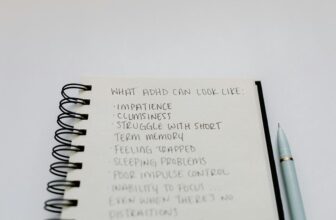 WHAT ADHD CAN LOOK LIKE:
· IMPATIENCE
· CLUMSINESS
· STRUGGLE WITH SHORT
TERM MEMORY
· FEELING TRAPPED
· SLEEPING PROBLEMS
· POOR IMPULSE CONTROL
INABILITY TO FOCUS ...
EVEN WHEN THERE'S NO
DISTRACTIONS